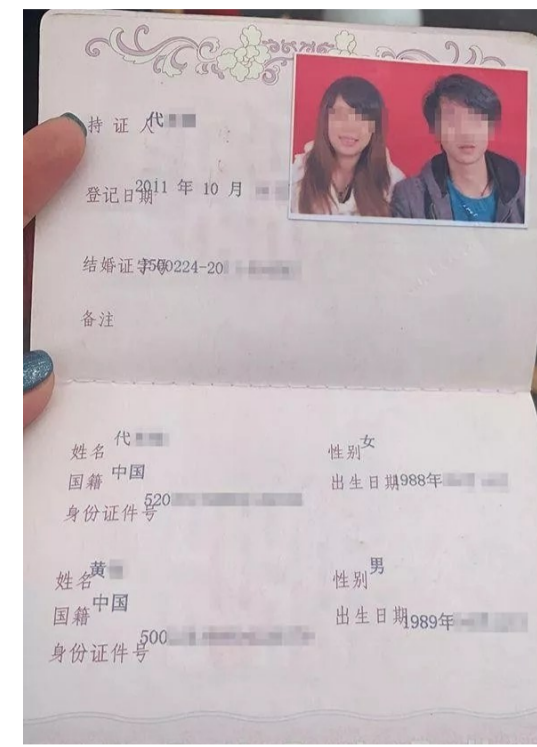 持证人 代
登记日期 2011 年 10 月
结婚证字号 J500224-20
备注
姓名 代 性别 女
国籍 中国 出生日期 1988年
身份证件号 520
姓名 黄 性别 男
国籍 中国 出生日期 1989年
身份证件号 500